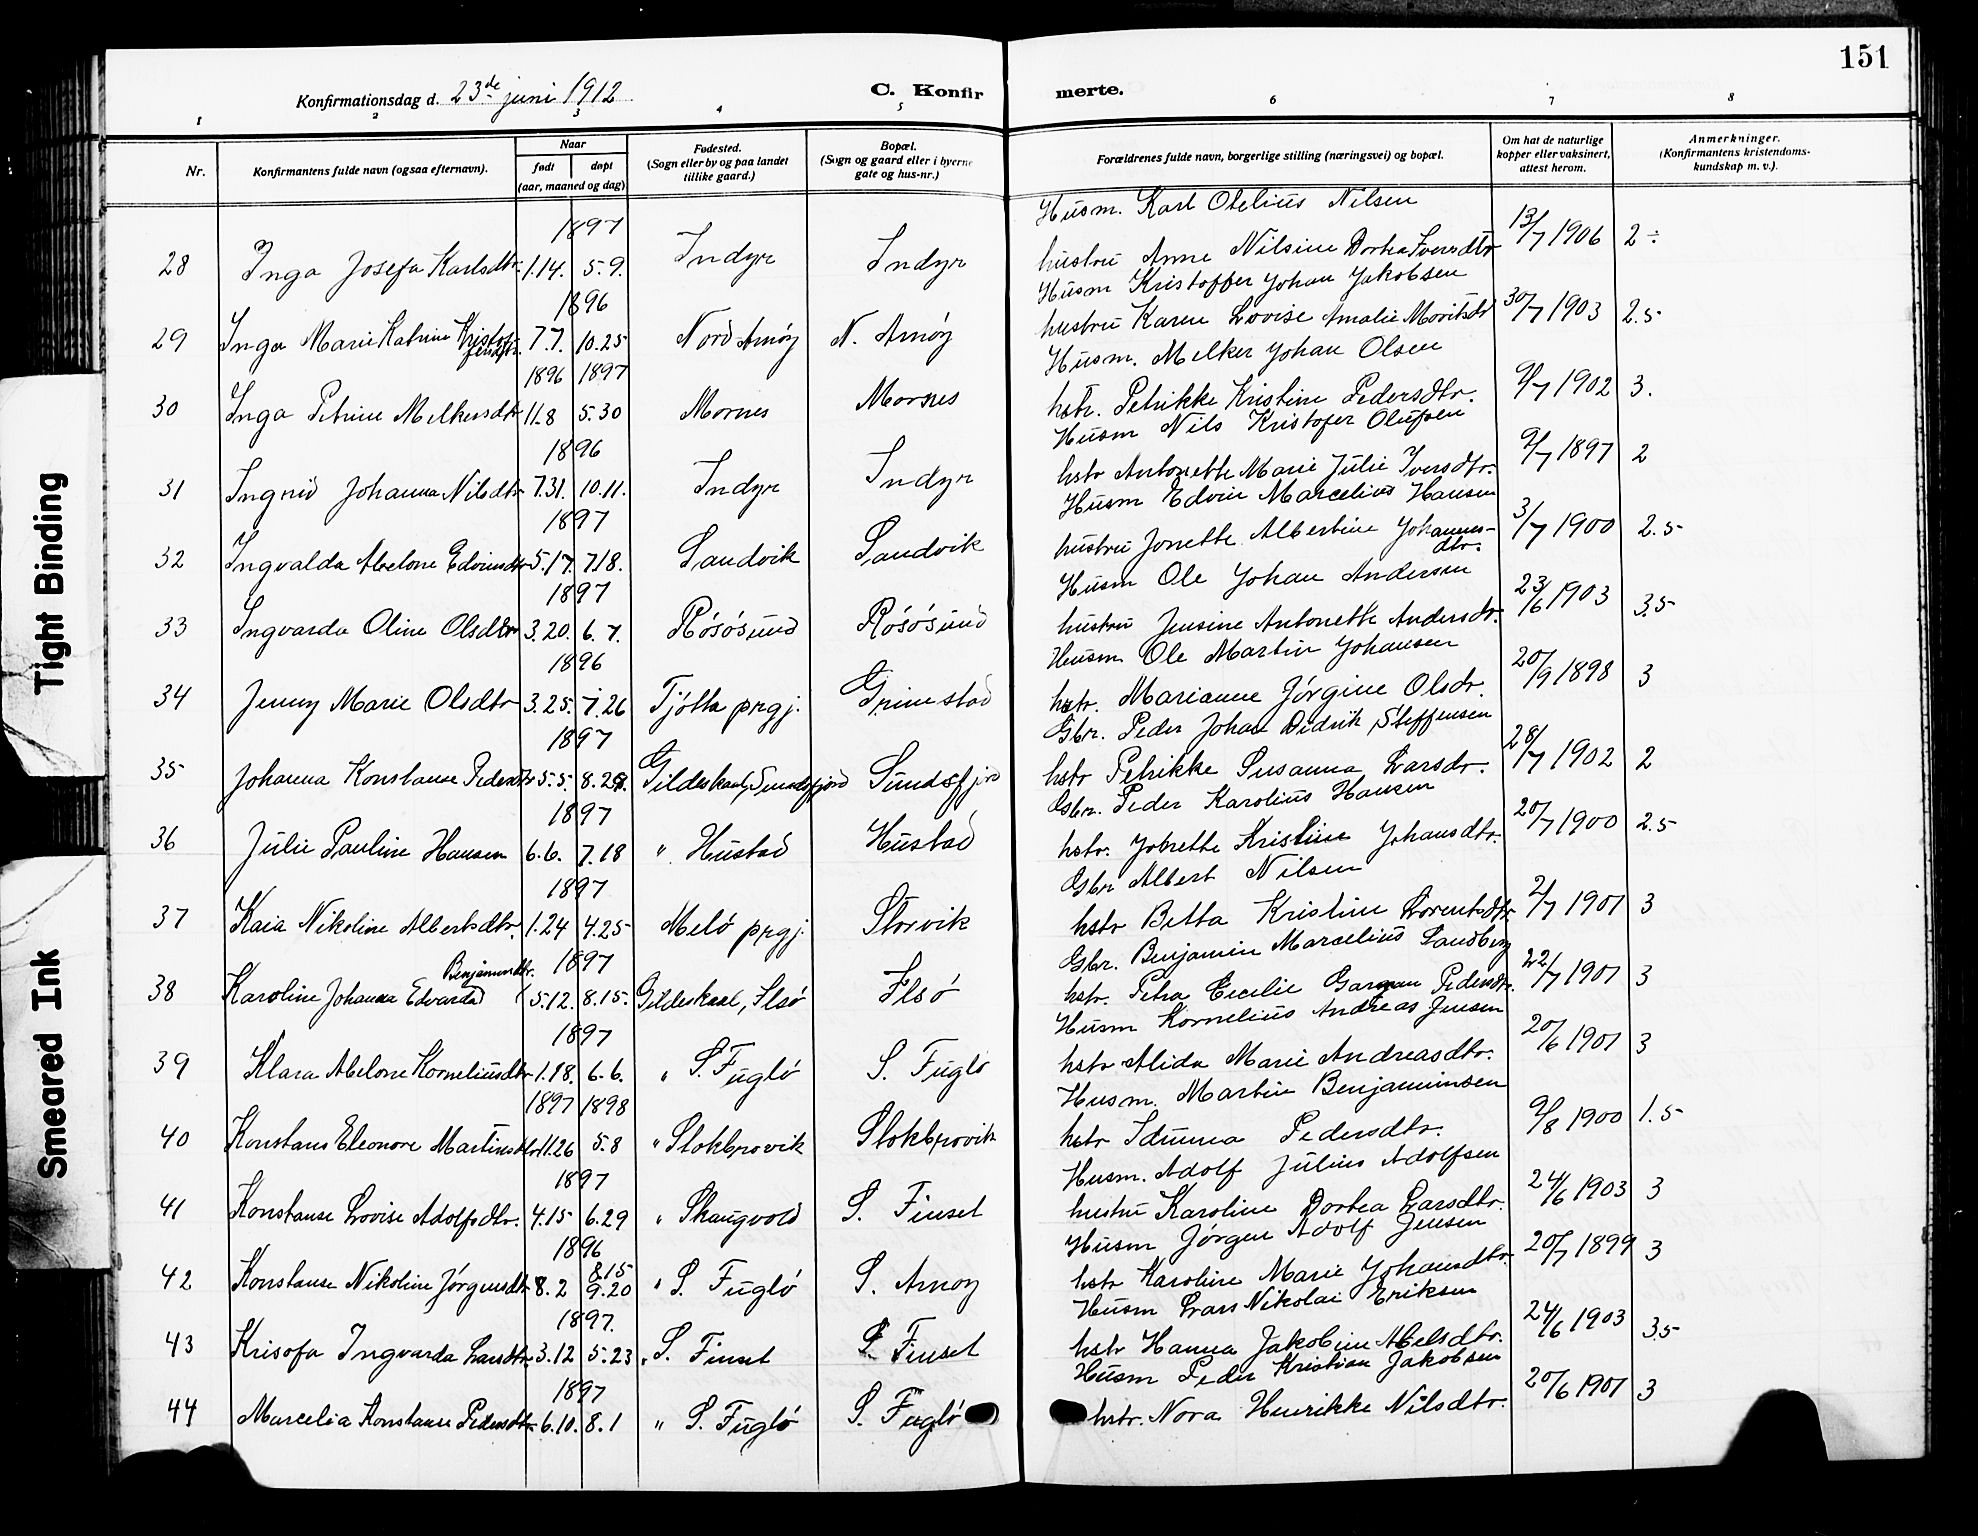 151
Konfirmationsdag d. 23de juni 1912
C. Konfirmerte.
1 2 3 4 5 6 7 8
Nr.
Konfirmantens fulde navn (ogsaa efternavn).
Naar
født døpt
(aar, maaned og dag)
Fødested.
(Sogn eller by og paa landet
tillike gaard.)
Bopæl.
(Sogn og gaard eller i byerne
gate og hus-nr.)
Forældrenes fulde navn, borgerlige stilling (næringsvei) og bopæl.
Om hat de naturlige
kopper eller vaksinert,
attest herom.
Anmerkninger.
(Konfirmantens kristendoms-
kundskap m. v.).
1897 Husm. Karl Otelius Nilsen
28 Inga Josefa Karlsdtr. 1.14. 5.9. Indyr Indyr hustru Anne Nilsine Dortea Iversdtr 13/7 1906 2÷
1896 Husm Kristoffer Johan Jakobsen
29 Inga Marie Katrine Kristof-
fersdtr. 7.7. 10.25 Nord Arnøy N. Arnøy hustru Karen Lovise Amalie Moritsdr 30/7 1903 2.5
1896 1897 Husm. Melker Johan Olsen
30 Inga Petrine Melkersdtr 11.8 5.30 Mornes Mornes hstr. Petrikke Kristine Pedersdtr. 9/7 1902 3.
1896 Husm Nils Kristofer Olufsen
31 Ingrid Johanna Nilsdtr 7.31. 10.11. Indyr Indyr hstr Antonette Marie Julie Iversdtr. 9/7 1897 2
1897 Husm Edvin Marcelius Hansen
32 Ingvalda Abelone Edvinsdtr 5.17. 7.18. Sandvik Sandvik hustru Jonette Albertine Johannes-
dtr. 3/7 1900 2.5
1897 Husm Ole Johan Andersen
33 Ingvarda Oline Olsdtr 3.20. 6.7. Røsøsund Røsøsund hustru Jensine Antonette Andersdr. 23/6 1903 3.5
1896 Husm Ole Martin Johansen
34 Jenny Marie Olsdtr 3.25. 7.26 Tjøtta prgj. Grimstad hstr. Marianne Jørgine Olsdr. 20/9 1898 3
1897 Gbr. Peder Johan Didrik Steffensen
35 Johanna Konstanse Pedersdtr 5.5. 8.29. Gildeskaal, Sundsfjord Sundsfjord hstr Petrikke Susanna Larsdr. 28/7 1902 2
1897 Gbr. Peder Karolius Hansen
36 Julie Pauline Hansen 6.6. 7.18 " Hustad Hustad hstr. Jobrette Kristine Johansdtr. 20/7 1900 2.5
1897 Gbr Albert Nilsen
37 Kaia Nikoline Albertsdtr. 1.24 4.25 Melø prgj. Storvik hstr Betta Kristine Lorentsdtr 2/7 1901 3
Benjaminsdtr. 1897 Gbr. Benjamin Marcelius Sandberg
38 Karoline Johanna Edvarda 5.12. 8.15. Gildeskaal, Flsø Flsø hstr. Petra Cecilie Garman Pedersdtr. 22/7 1901 3
1897 Husm Kornelius Andreas Jensen
39 Klara Abelone Korneliusdtr 1.18. 6.6. " S. Fuglø S. Fuglø hstr Alida Marie Andreasdtr. 20/6 1901 3
1897 1898 Husm. Martin Benjaminsen
40 Konstans Eleonore Martinsdtr 11.26 5.8 " Stokbrovik Stokbrovik hstr Idunna Pedersdtr. 9/8 1900 1.5
1897 Husm. Adolf Julius Adolfsen
41 Konstanse Lovise Adolfsdtr. 4.15 6.29 " Skaugvold S. Finset hustru Karoline Dortea Larsdtr. 24/6 1903 3
1896 Husm Jørgen Adolf Jensen
42 Konstanse Nikoline Jørgensdtr 8.2 8.15
9.20 " S. Fuglø S. Arnøy hstr Karoline Marie Johansdtr. 20/7 1899 3
1897. Husm Lars Nikolai Eriksen
43 Krisofa Ingvarda Larsdtr. 3.12 5.23 " S. Finset S. Finset hstr Hanna Jakobine Abelsdtr. 24/6 1903 3.5
1897 Husm Peder Kristian Jakobsen
44 Marcelia Konstanse Pedersdtr 6.10. 8.1 " S. Fuglø S. Fuglø hstr. Nora Henrikke Nilsdtr. 20/6 1901 3
Tight Binding
Smeared Ink